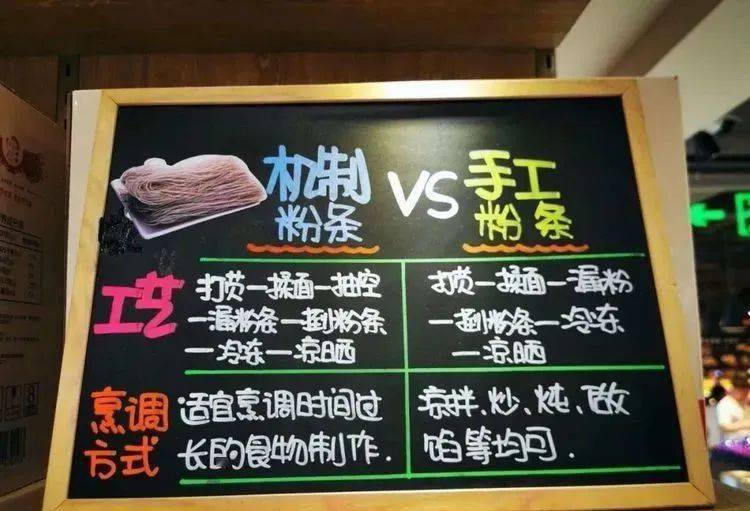 机制 VS 手工
粉条 粉条
工艺
打芡一揉面一抽空
一漏粉条一捌粉条
一冷冻一凉晒
打芡一揉面一漏粉
一捌粉条一冷冻
一凉晒
烹调
方式
适宜烹调时间过
长的食物制作.
凉拌、炒、炖、做
馅等均可.